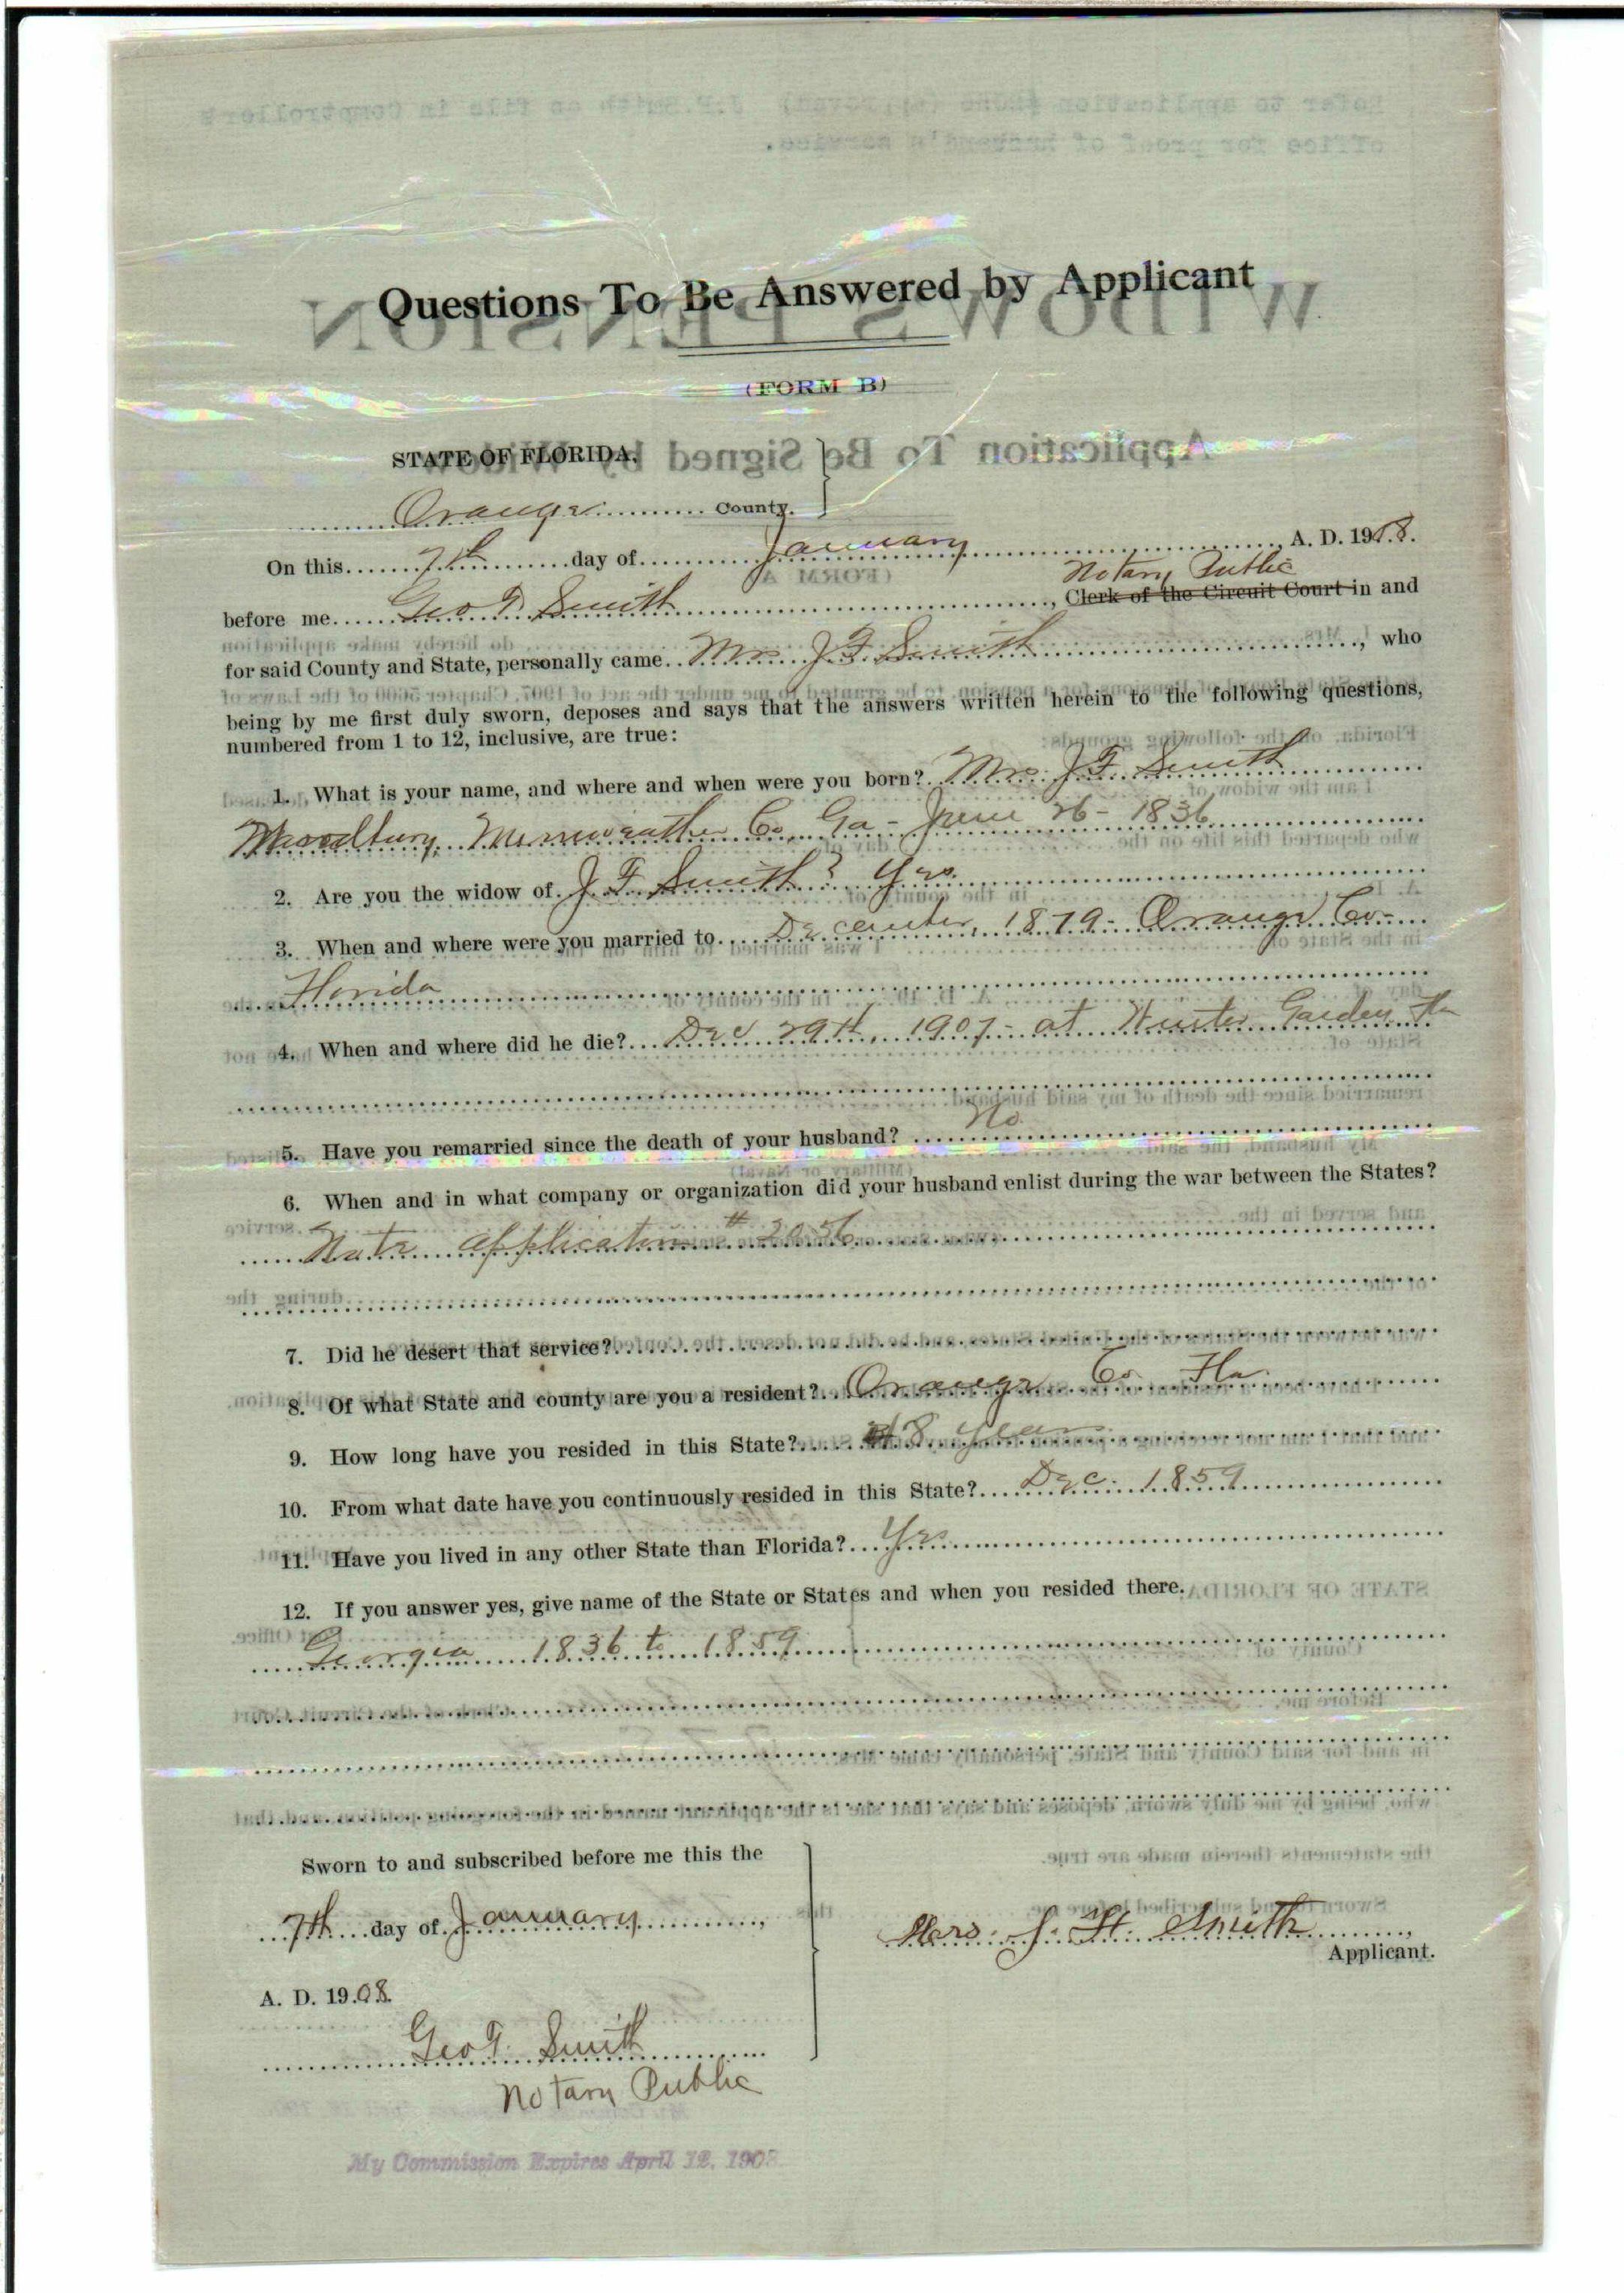 Questions To Be Answered by Applicant
(FORM B)
STATE OF FLORIDA.
Orange County.
On this 7th day of January, A. D. 1908.
Notary Public
before me Geo T. Smith, Clerk of the Circuit Court in and
for said County and State, personally came Mrs J F Smith, who
being by me first duly sworn, deposes and says that the answers written herein to the following questions,
numbered from 1 to 12, inclusive, are true:
1. What is your name, and where and when were you born? Mrs. J F Smith
Woodbury, Ga - June 26 - 1836
2. Are you the widow of J F Smith? Yes
3. When and where were you married to December, 1879 - Orange Co -
Florida
4. When and where did he die? Dec 29th, 1907 - at Winter Garden Fla
5. Have you remarried since the death of your husband? No
6. When and in what company or organization did your husband enlist during the war between the States?
Note application # 2056
7. Did he desert that service?
8. Of what State and county are you a resident? Orange Co Fla.
9. How long have you resided in this State? 48 years
10. From what date have you continuously resided in this State? Dec. 1859
11. Have you lived in any other State than Florida? Yes
12. If you answer yes, give name of the State or States and when you resided there.
Georgia 1836 to 1859
Sworn to and subscribed before me this the
7th day of January,
Mrs. J. F. Smith,
Applicant.
A. D. 1908
Geo T. Smith
Notary Public
My Commission Expires April 12, 1908